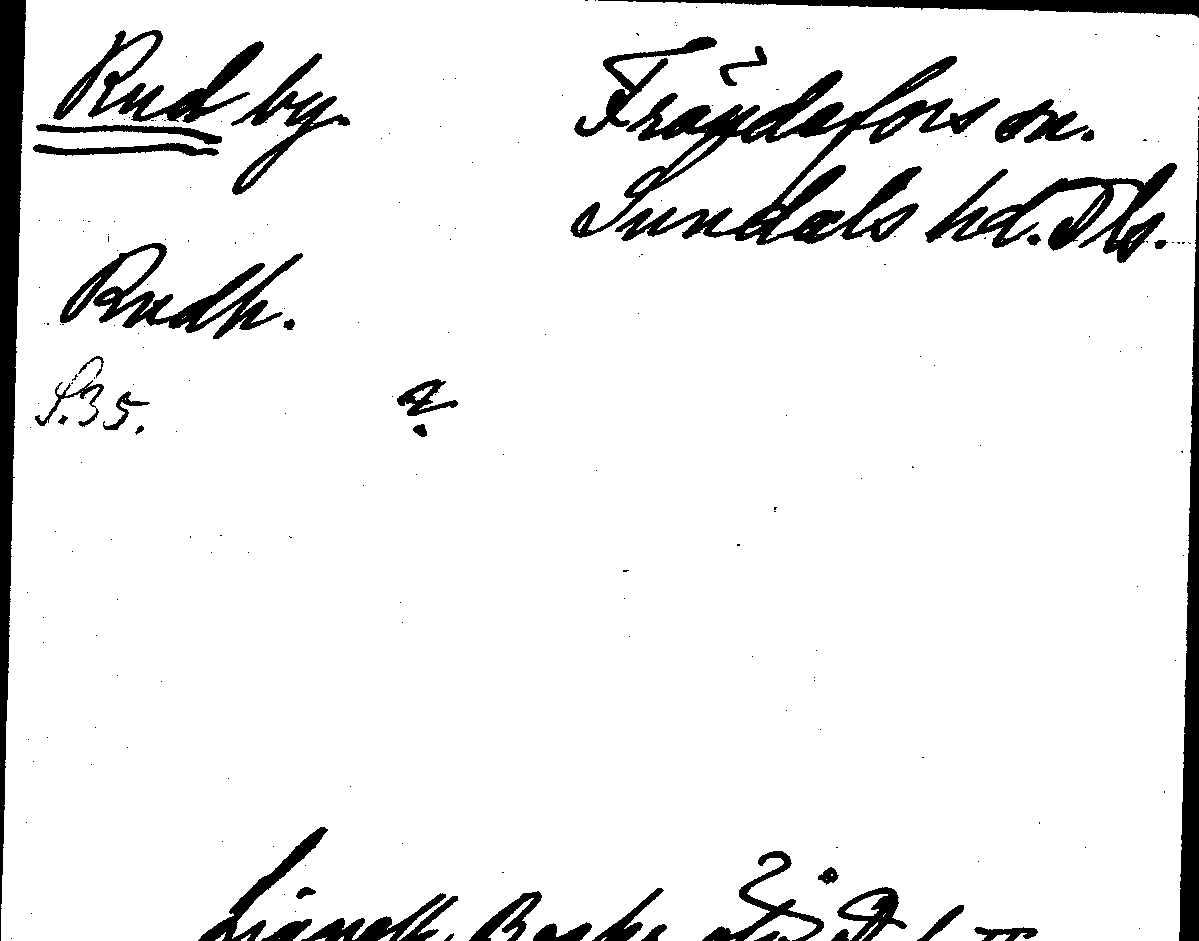 Rud by.
Frändefors sn.
Sundals hd. Dls.
Rudh.
S. 35.
Lignell, Beskr.